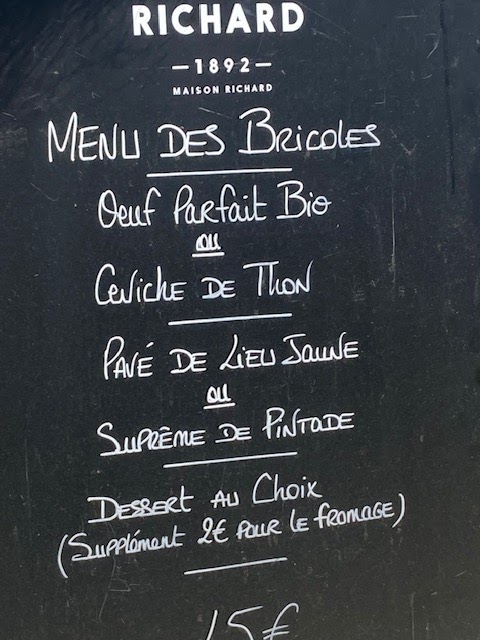 RICHARD
—1892—
MAISON RICHARD
MENU DES BRICOLES
Oeuf Parfait Bio
ou
Ceviche DE THON
PAVÉ DE LIEU JAUNE
ou
SUPRÊME DE PINTADE
DESSERT AU Choix
(Supplément 2€ POUR LE fROMAGE)
15€